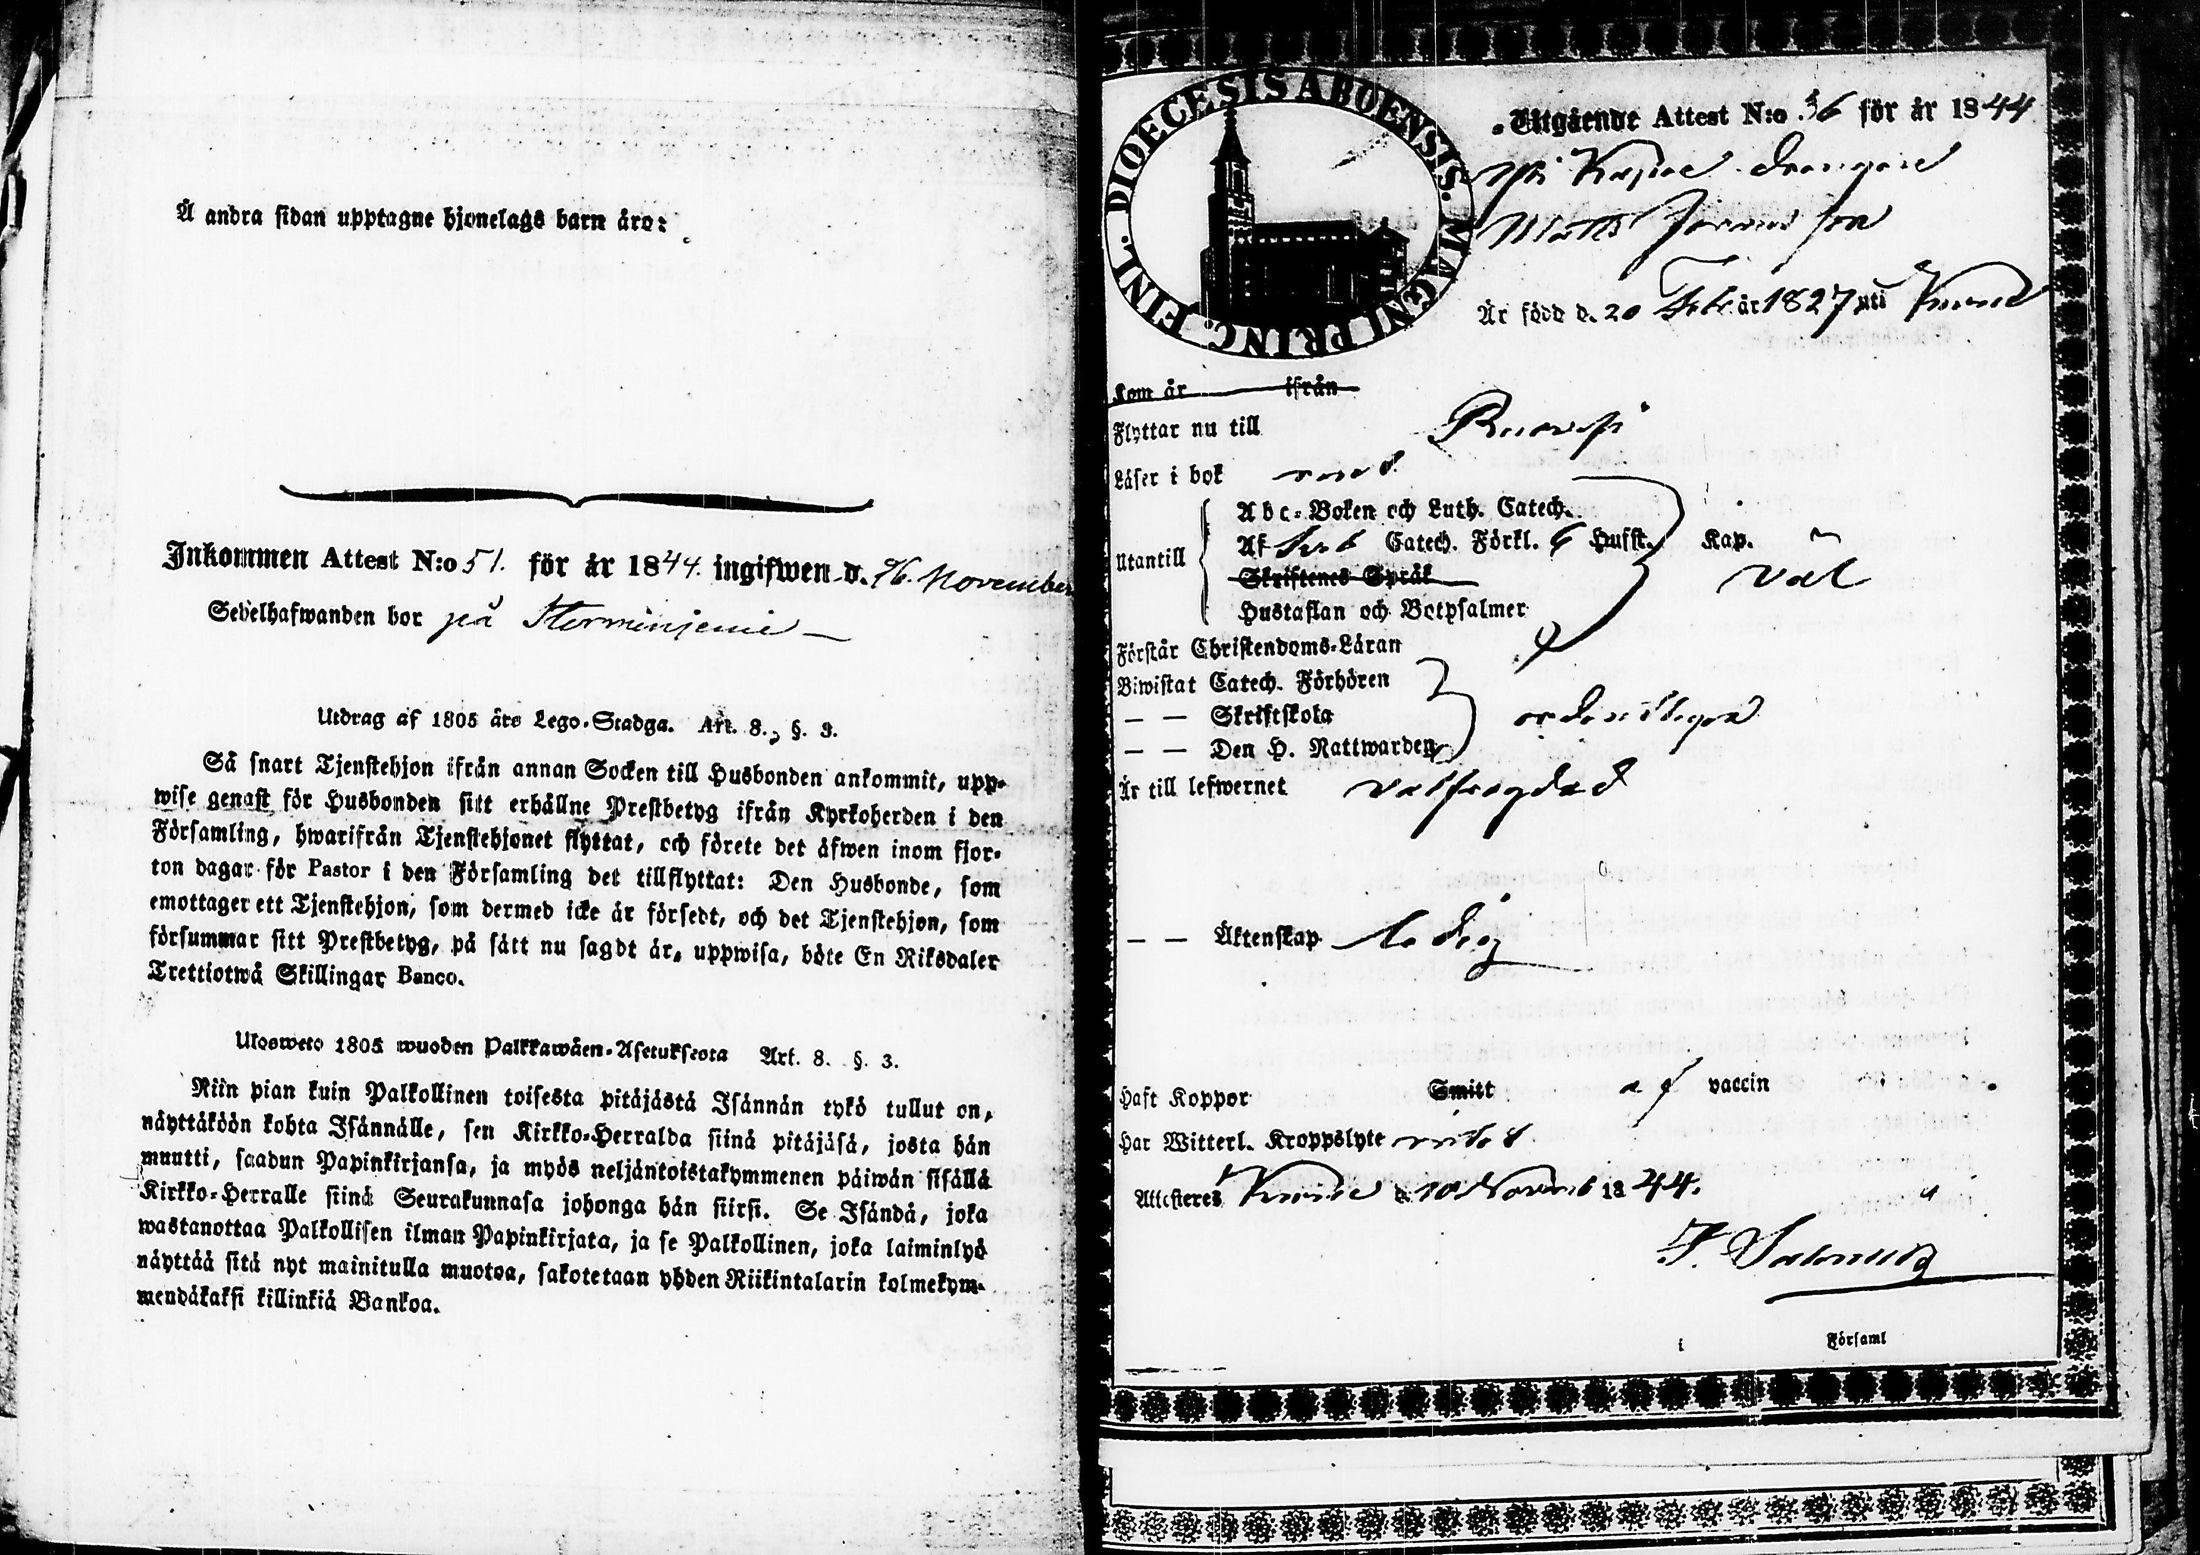 Å andra sidan upptagne hjonelags barn äro:
Inkommen Attest N:o 51. för år 1844. ingifwen d. 26. November
Sedelhafwanden bor på
Utdrag af 1805 års Lego-Stadga. Art. 8., §. 3.
Så snart Tjenstehjon ifrån annan Socken till Husbonden ankommit, upp-
wise genast för Husbonden sitt erhållne Prestbetyg ifrån Kyrkoherden i den
Församling, hwarifrån Tjenstehjonet flyttat, och förete det äfwen inom fjor-
ton dagar för Pastor i den Församling det tillflyttat: Den Husbonde, som
emottager ett Tjenstehjon, som dermed icke är försedt, och det Tjenstehjon, som
försummar sitt Prestbetyg, på sätt nu sagdt är, uppwisa, böte En Riksdaler
Trettiotwå Skillingar Banco.
Ulosweto 1805 wuoden Palkkawäen-Asetuksesta Art. 8. §. 3.
Niin pian kuin Palkollinen toisesta pitäjästä Isännän tykö tullut on,
näyttäköön kohta Isännälle, sen Kirkko-Herralda siinä pitäjäsä, josta hän
muutti, saadun Papinkirjansa, ja myös neljäntoistakymmenen päiwän sisällä
Kirkko-Herralle siinä Seurakunnasa johonga hän siirsi. Se Isändä, joka
wastanottaa Palkollisen ilman Papinkirjata, ja se Palkollinen, joka laiminlyö
näyttää sitä nyt mainitulla muotoa, sakotetaan yhden Riikintalarin kolmekym-
mendäkaksi killinkiä Bankoa.
DIOECESIS ABOENSIS. MAGNI PRINC. FINL.
Utgående Attest N:o 36 för år 1844
Matts
Är född d. 20 Feb år 1827 uti
Kom år ifrån
Flyttar nu till
Läser i bok
Utantill
Abc-Boken och Luth. Catech.
Af Catech. Förkl. 6 Husst. Kap.
Skriftenes Språk
väl
Hustaflan och Botpsalmer
Förstår Christendoms-Läran
Biwistat Catech. Förhören
— — Skriftskola ordenteligen
— — Den H. Nattwarden
Är till lefwernet välfrägdad
— — Äktenskap ledig
Haft Koppor Smitt af vaccin
Har Witterl. Kroppslyte intet
Attesteres d. 10 Novemb 1844.
i Församl